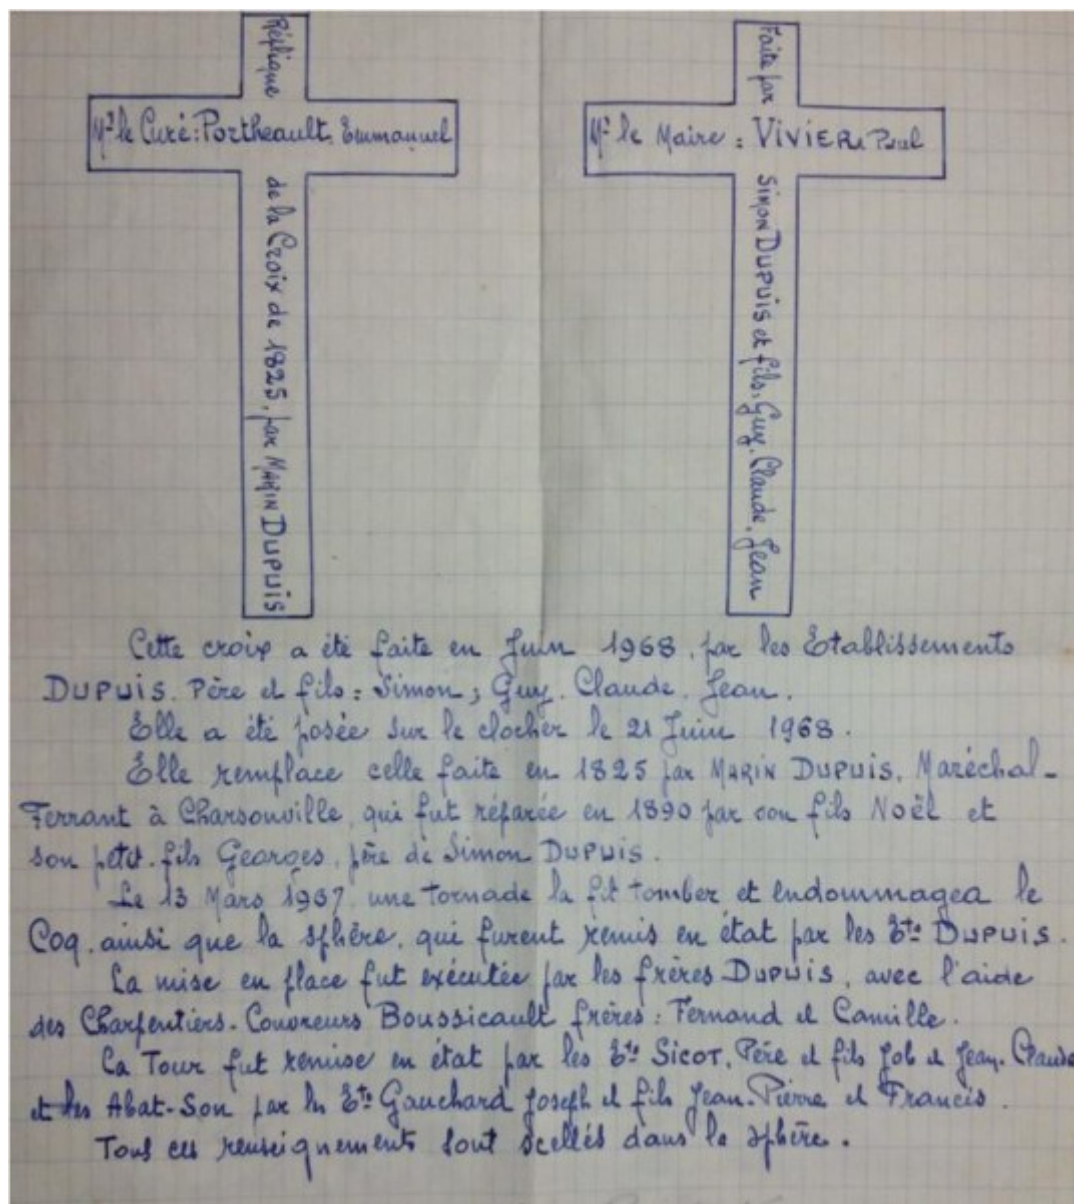 Réplique
Mr le Curé : Portheault. Emmanuel
de la Croix de 1825, par MARIN DUPUIS
Faite par
Mr le Maire : VIVIER. Paul
SIMON DUPUIS et fils, Guy. Claude. Jean
Cette croix a été faite en Juin 1968, par les Etablissements
DUPUIS. Père et fils : Simon ; Guy. Claude. Jean.
Elle a été posée sur le clocher le 21 Juin 1968.
Elle remplace celle faite en 1825 par MARIN DUPUIS. Maréchal-
Ferrant à Charsonville, qui fut réparée en 1890 par son fils Noël et
son petit-fils Georges, père de Simon DUPUIS.
Le 13 Mars 1967, une tornade la fit tomber et endommagea le
Coq, ainsi que la sphère, qui furent remis en état par les Ets DUPUIS.
La mise en place fut exécutée par les frères DUPUIS, avec l'aide
des Charpentiers-Couvreurs Boussicault frères : Fernand et Camille.
La Tour fut remise en état par les Ets SICOT. Père et fils Job et Jean-Claude
et les Abat-Son par les Ets Gauchard Joseph et fils Jean-Pierre et Francis.
Tous ces renseignements sont scellés dans la sphère.